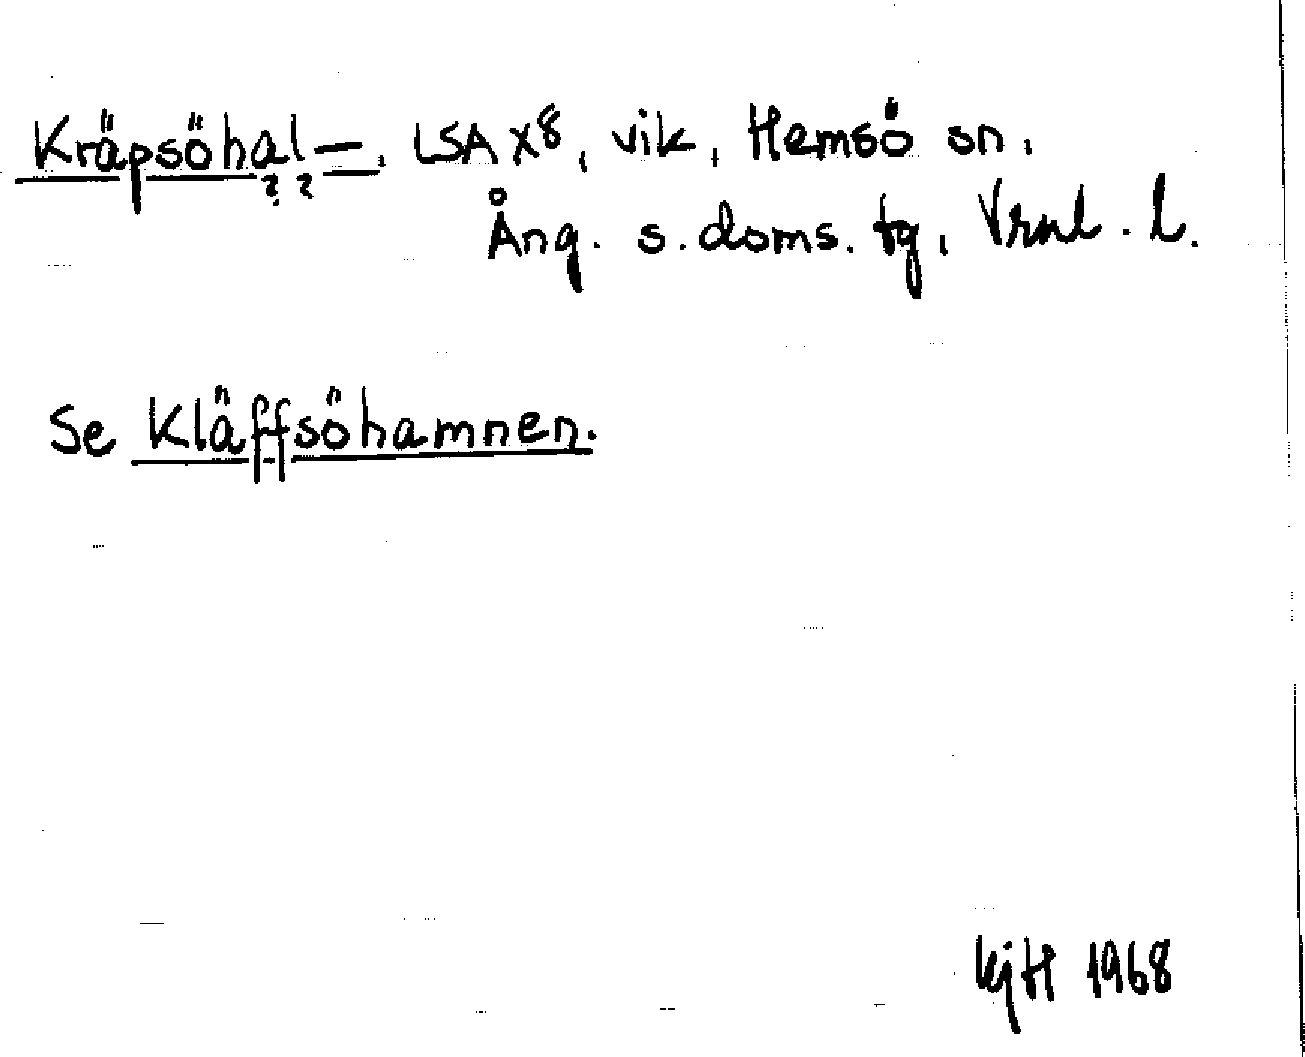 Kräpsöhal—, LSA X8, vik, Hemsö sn,
? ?
Ång. s. doms. tg, Vrnl. l.
Se Kläffsöhamnen.
KjH 1968